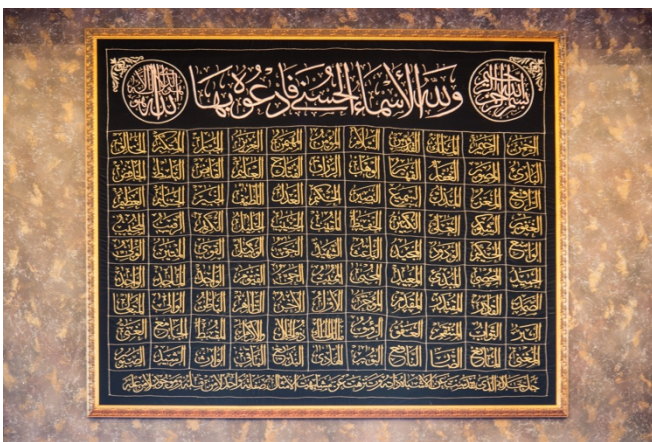 بسم الله الرحمن الرحيم
ولله الأسماء الحسنى فادعوه بها
الرحمن الرحيم الملك القدوس السلام المؤمن المهيمن العزيز الجبار المتكبر الخالق
البارئ المصور الغفار القهار الوهاب الرزاق الفتاح العليم القابض الباسط الخافض
الرافع المعز المذل السميع البصير الحكم العدل اللطيف الخبير الحليم العظيم
الغفور الشكور العلي الكبير الحفيظ المقيت الحسيب الجليل الكريم الرقيب المجيب
الواسع الحكيم الودود المجيد الباعث الشهيد الحق الوكيل القوي المتين الولي
الحميد المحصي المبدئ المعيد المحيي المميت الحي القيوم الواجد الماجد الواحد
الصمد القادر المقتدر المقدم المؤخر الأول الآخر الظاهر الباطن الوالي المتعالي
البر التواب المنتقم العفو الرؤف مالك الملك ذو الجلال والإكرام المقسط الجامع الغني
المغني المانع الضار النافع النور الهادي البديع الباقي الوارث الرشيد الصبور
جل جلاله الذي تقدست عن الأشباه ذاته وتنزهت عن مشابهة الأمثال صفاته واحد لا من قلة وموجود لا من علة